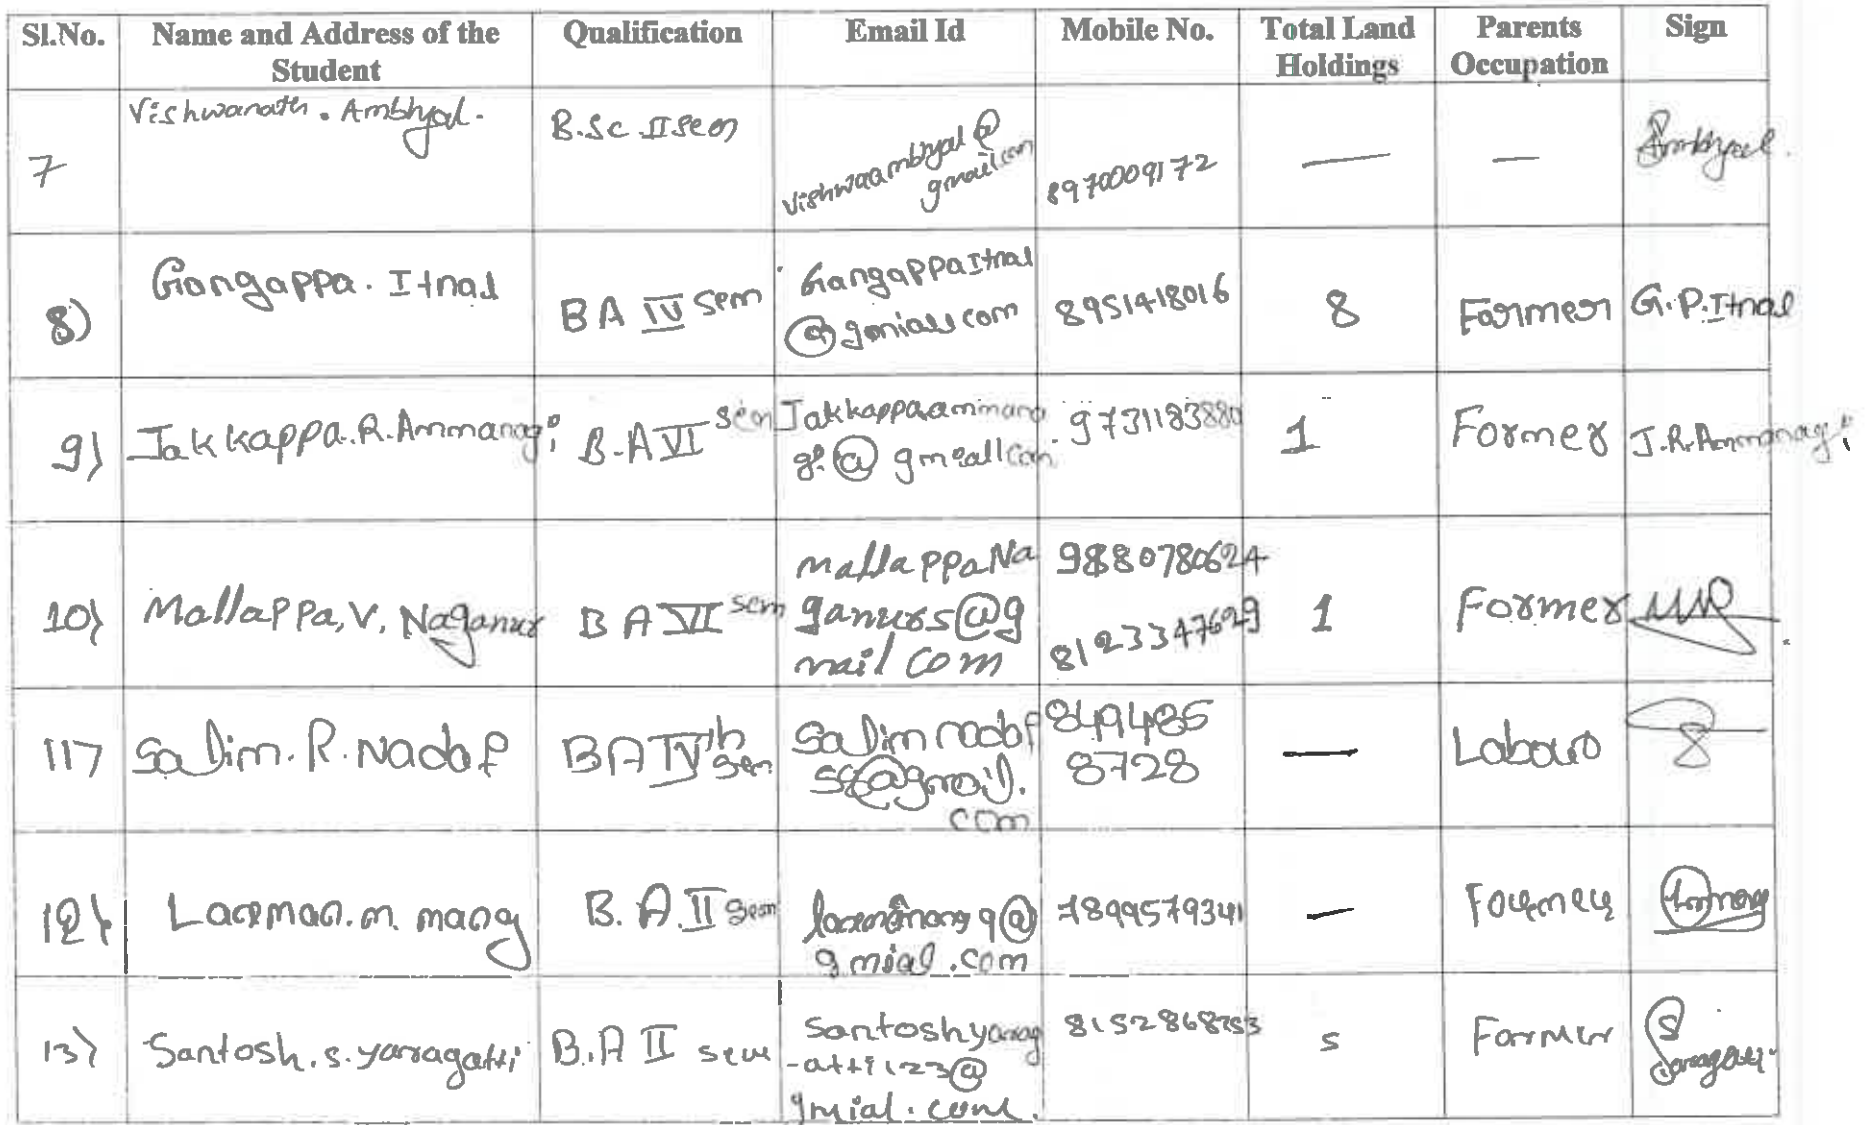 Sl.No. Name and Address of the Student Qualification Email Id Mobile No. Total Land Holdings Parents Occupation Sign
7 Vishwanath. Ambhyal. B.Sc II Sem vishwaambhyal@ gmail com 8970009172 — — Ambhyal.
8) Gangappa. Itnal BA IV sem GangappaItnal @gmiall com 8951418016 8 Farmer G.P.Itnal
9) Jakkappa.R.Ammanagi B.A VI sem Jakkappaammana gi@ gmeall com 9731183880 1 Former J.R.Ammanagi
10) Mallappa, V, Naganur B A VII sem mallappaNa ganurs@g mail com 9880780624 8123347629 1 Former
11) Salim. R. Nadaf BA IVth Sem Salimnadaf @gmail. com 849485 8728 — Labour
12) Laxman. m. mang B. A. II Sem @ gmial.com 7899579341 — Farmer
13) Santosh. s. yaragatti B.A II sem Santoshyarag -atti123@ gmial.com. 8152868753 5 Farmer